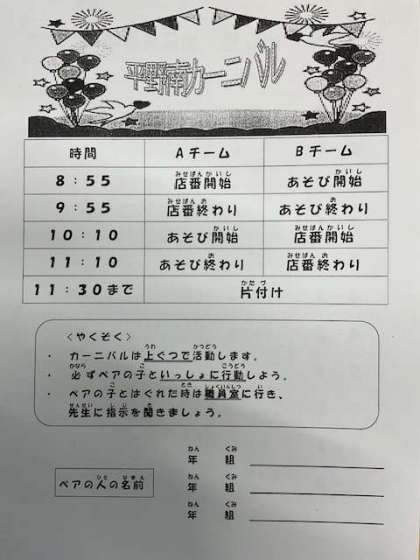 平野南カーニバル
時間 Aチーム Bチーム
8:55 店番開始 あそび開始
9:55 店番終わり あそび終わり
10:10 あそび開始 店番開始
11:10 あそび終わり 店番終わり
11:30まで 片付け
<やくそく>
・ カーニバルは上ぐつで活動します。
・ 必ずペアの子といっしょに行動しよう。
・ ペアの子とはぐれた時は職員室に行き、
先生に指示を聞きましょう。
年 組
ペアの人の名前 年 組
年 組